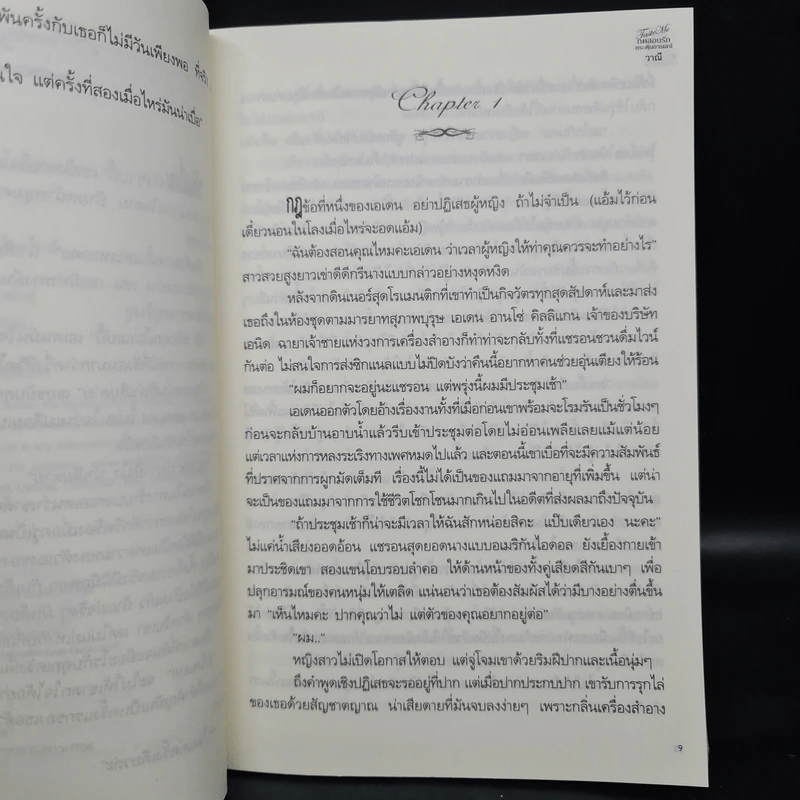 พันครั้งกับเธอก็ไม่มีวันเพียงพอ ที่จริง
นใจ แต่ครั้งที่สองเมื่อไหร่มันน่าเบื่อ"
Taste Me
ทดลองรัก
กระตุ้นอารมณ์
วาณี
Chapter 1
กฎข้อที่หนึ่งของเอเดน อย่าปฏิเสธผู้หญิง ถ้าไม่จำเป็น (แอ้มไว้ก่อน
เดี๋ยวนอนในโลงเมื่อไหร่จะอดแอ้ม)
"ฉันต้องสอนคุณไหมคะเอเดน ว่าเวลาผู้หญิงให้ท่าคุณควรจะทำอย่างไร"
สาวสวยสูงยาวเข่าดีดีกรีนางแบบกล่าวอย่างหงุดหงิด
หลังจากดินเนอร์สุดโรแมนติกที่เขาทำเป็นกิจวัตรทุกสุดสัปดาห์และมาส่ง
เธอถึงในห้องชุดตามมารยาทสุภาพบุรุษ เอเดน อานโซ่ คิลลิแกน เจ้าของบริษัท
เอนิด ฉายาเจ้าชายแห่งวงการเครื่องสำอางก็ทำท่าจะกลับทั้งที่แชรอนชวนดื่มไวน์
กันต่อ ไม่สนใจการส่งซิกแนลแบบไม่ปิดบังว่าคืนนี้อยากหาคนช่วยอุ่นเตียงให้ร้อน
"ผมก็อยากจะอยู่นะแชรอน แต่พรุ่งนี้ผมมีประชุมเช้า"
เอเดนออกตัวโดยอ้างเรื่องงานทั้งที่เมื่อก่อนเขาพร้อมจะโรมรันเป็นชั่วโมงๆ
ก่อนจะกลับบ้านอาบน้ำแล้วรีบเข้าประชุมต่อโดยไม่อ่อนเพลียเลยแม้แต่น้อย
แต่เวลาแห่งการหลงระเริงทางเพศหมดไปแล้ว และตอนนี้เขาเบื่อที่จะมีความสัมพันธ์
ที่ปราศจากการผูกมัดเต็มที เรื่องนี้ไม่ได้เป็นของแถมมาจากอายุที่เพิ่มขึ้น แต่น่า
จะเป็นของแถมมาจากการใช้ชีวิตโชกโชนมากเกินไปในอดีตที่ส่งผลมาถึงปัจจุบัน
"ถ้าประชุมเช้าก็น่าจะมีเวลาให้ฉันสักหน่อยสิคะ แป๊บเดียวเอง นะคะ"
ไม่แค่น้ำเสียงออดอ้อน แชรอนสุดยอดนางแบบอเมริกันไอดอล ยังเยื้องกายเข้า
มาประชิดเขา สองแขนโอบรอบลำคอ ให้ด้านหน้าของทั้งคู่เสียดสีกันเบาๆ เพื่อ
ปลุกอารมณ์ของคนหนุ่มให้เตลิด แน่นอนว่าเธอต้องสัมผัสได้ว่ามีบางอย่างตื่นขึ้น
มา "เห็นไหมคะ ปากคุณว่าไม่ แต่ตัวของคุณอยากอยู่ต่อ"
"ผม.."
หญิงสาวไม่เปิดโอกาสให้ตอบ แต่จู่โจมเขาด้วยริมฝีปากและเนื้อนุ่มๆ
ถึงคำพูดเชิงปฏิเสธจะรออยู่ที่ปาก แต่เมื่อปากประกบปาก เขารับการรุกไล่
ของเธอด้วยสัญชาตญาณ น่าเสียดายที่มันจบลงง่ายๆ เพราะกลิ่นเครื่องสำอาง
9